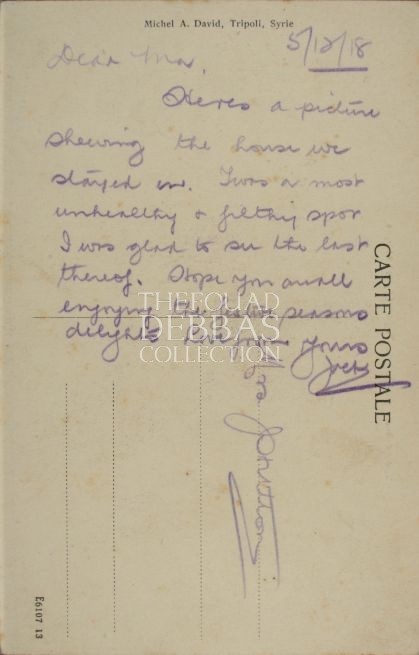 Michel A. David, Tripoli, Syrie
5/12/18
Dear Ma,
Heres a picture
shewing the house we
stayed in. Twas a most
unhealthy & filthy spot
I was glad to see the last
thereof. Hope you are all
enjoying the festive seasons
delights Love from yours
Jack
Mrs Johnston
CARTE POSTALE
THE FOUAD
DEBBAS
COLLECTION
E6107 13